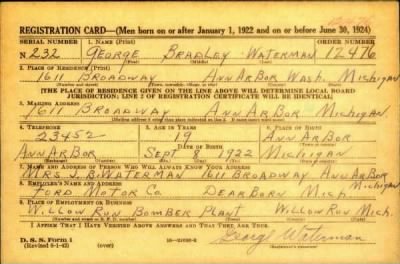 REGISTRATION CARD—(Men born on or after January 1, 1922 and on or before June 30, 1924)
SERIAL NUMBER 1. NAME (Print) ORDER NUMBER
N 232 GEORGE BRADLEY WATERMAN 12476
(First) (Middle) (Last)
2. PLACE OF RESIDENCE (Print)
1611 BROADWAY ANN ARBOR WASH. MICHIGAN
(Number and street) (Town, township, village, or city) (County) (State)
[THE PLACE OF RESIDENCE GIVEN ON THE LINE ABOVE WILL DETERMINE LOCAL BOARD
JURISDICTION; LINE 2 OF REGISTRATION CERTIFICATE WILL BE IDENTICAL]
3. MAILING ADDRESS
1611 BROADWAY ANN ARBOR MICHIGAN.
[Mailing address if other than place indicated on line 2. If same insert word same]
4. TELEPHONE 5. AGE IN YEARS 6. PLACE OF BIRTH
23452 19 ANN ARBOR
DATE OF BIRTH
ANN ARBOR SEPT 1922 MICHIGAN
(Exchange) (Number) (Mo.) (Day) (Yr.) (State or country)
7. NAME AND ADDRESS OF PERSON WHO WILL ALWAYS KNOW YOUR ADDRESS
MRS J. B. WATERMAN 1611 BROADWAY ANN ARBOR
MICHIGAN
8. EMPLOYER'S NAME AND ADDRESS
FORD MOTOR CO. DEARBORN MICH.
9. PLACE OF EMPLOYMENT OR BUSINESS
WILLOW RUN BOMBER PLANT WILLOW RUN MICH.
(Number and street or R. F. D. number) (Town) (County) (State)
I AFFIRM THAT I HAVE VERIFIED ABOVE ANSWERS AND THAT THEY ARE TRUE.
D. S. S. Form 1
(Revised 6-1-42) (over) George Waterman